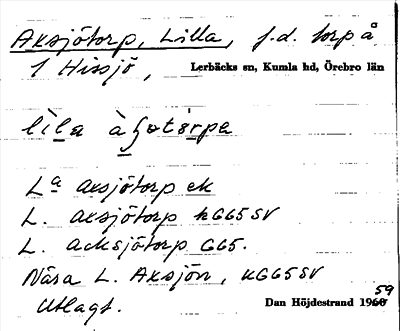 Aksjötorp, Lilla, f.d. torp å
1 Hissjö, Lerbäcks sn, Kumla hd, Örebro län
L<sup>a</sup> Aksjötorp ek
L. Aksjötorp kG65SV
L. Acksjötorp G65.
Nära L. Aksjön, kG65SV
Utlagt. Dan Höjdestrand 1960 59